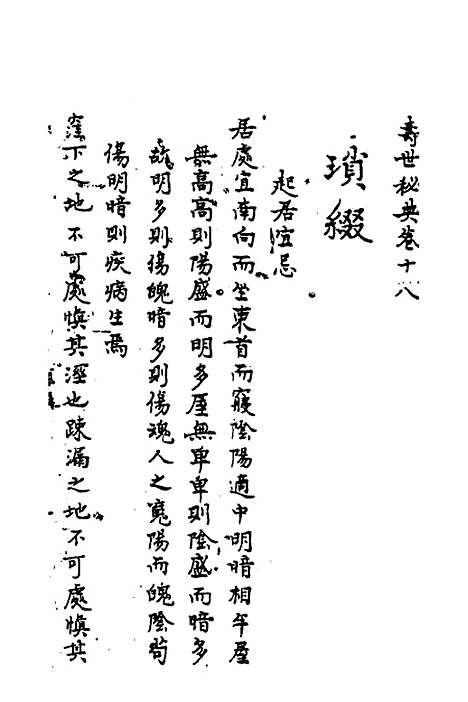 壽世秘典卷十八
瑣綴
起居宜忌
居處宜南向而坐東首而寢陰陽適中明暗相半屋
無高高則陽盛而明多屋無卑卑則陰盛而暗多
故明多則傷魄暗多則傷魂人之䰟陽而魄陰苟
傷明暗則疾病生焉
窪下之地不可處慎其溼也踈漏之地不可處慎其